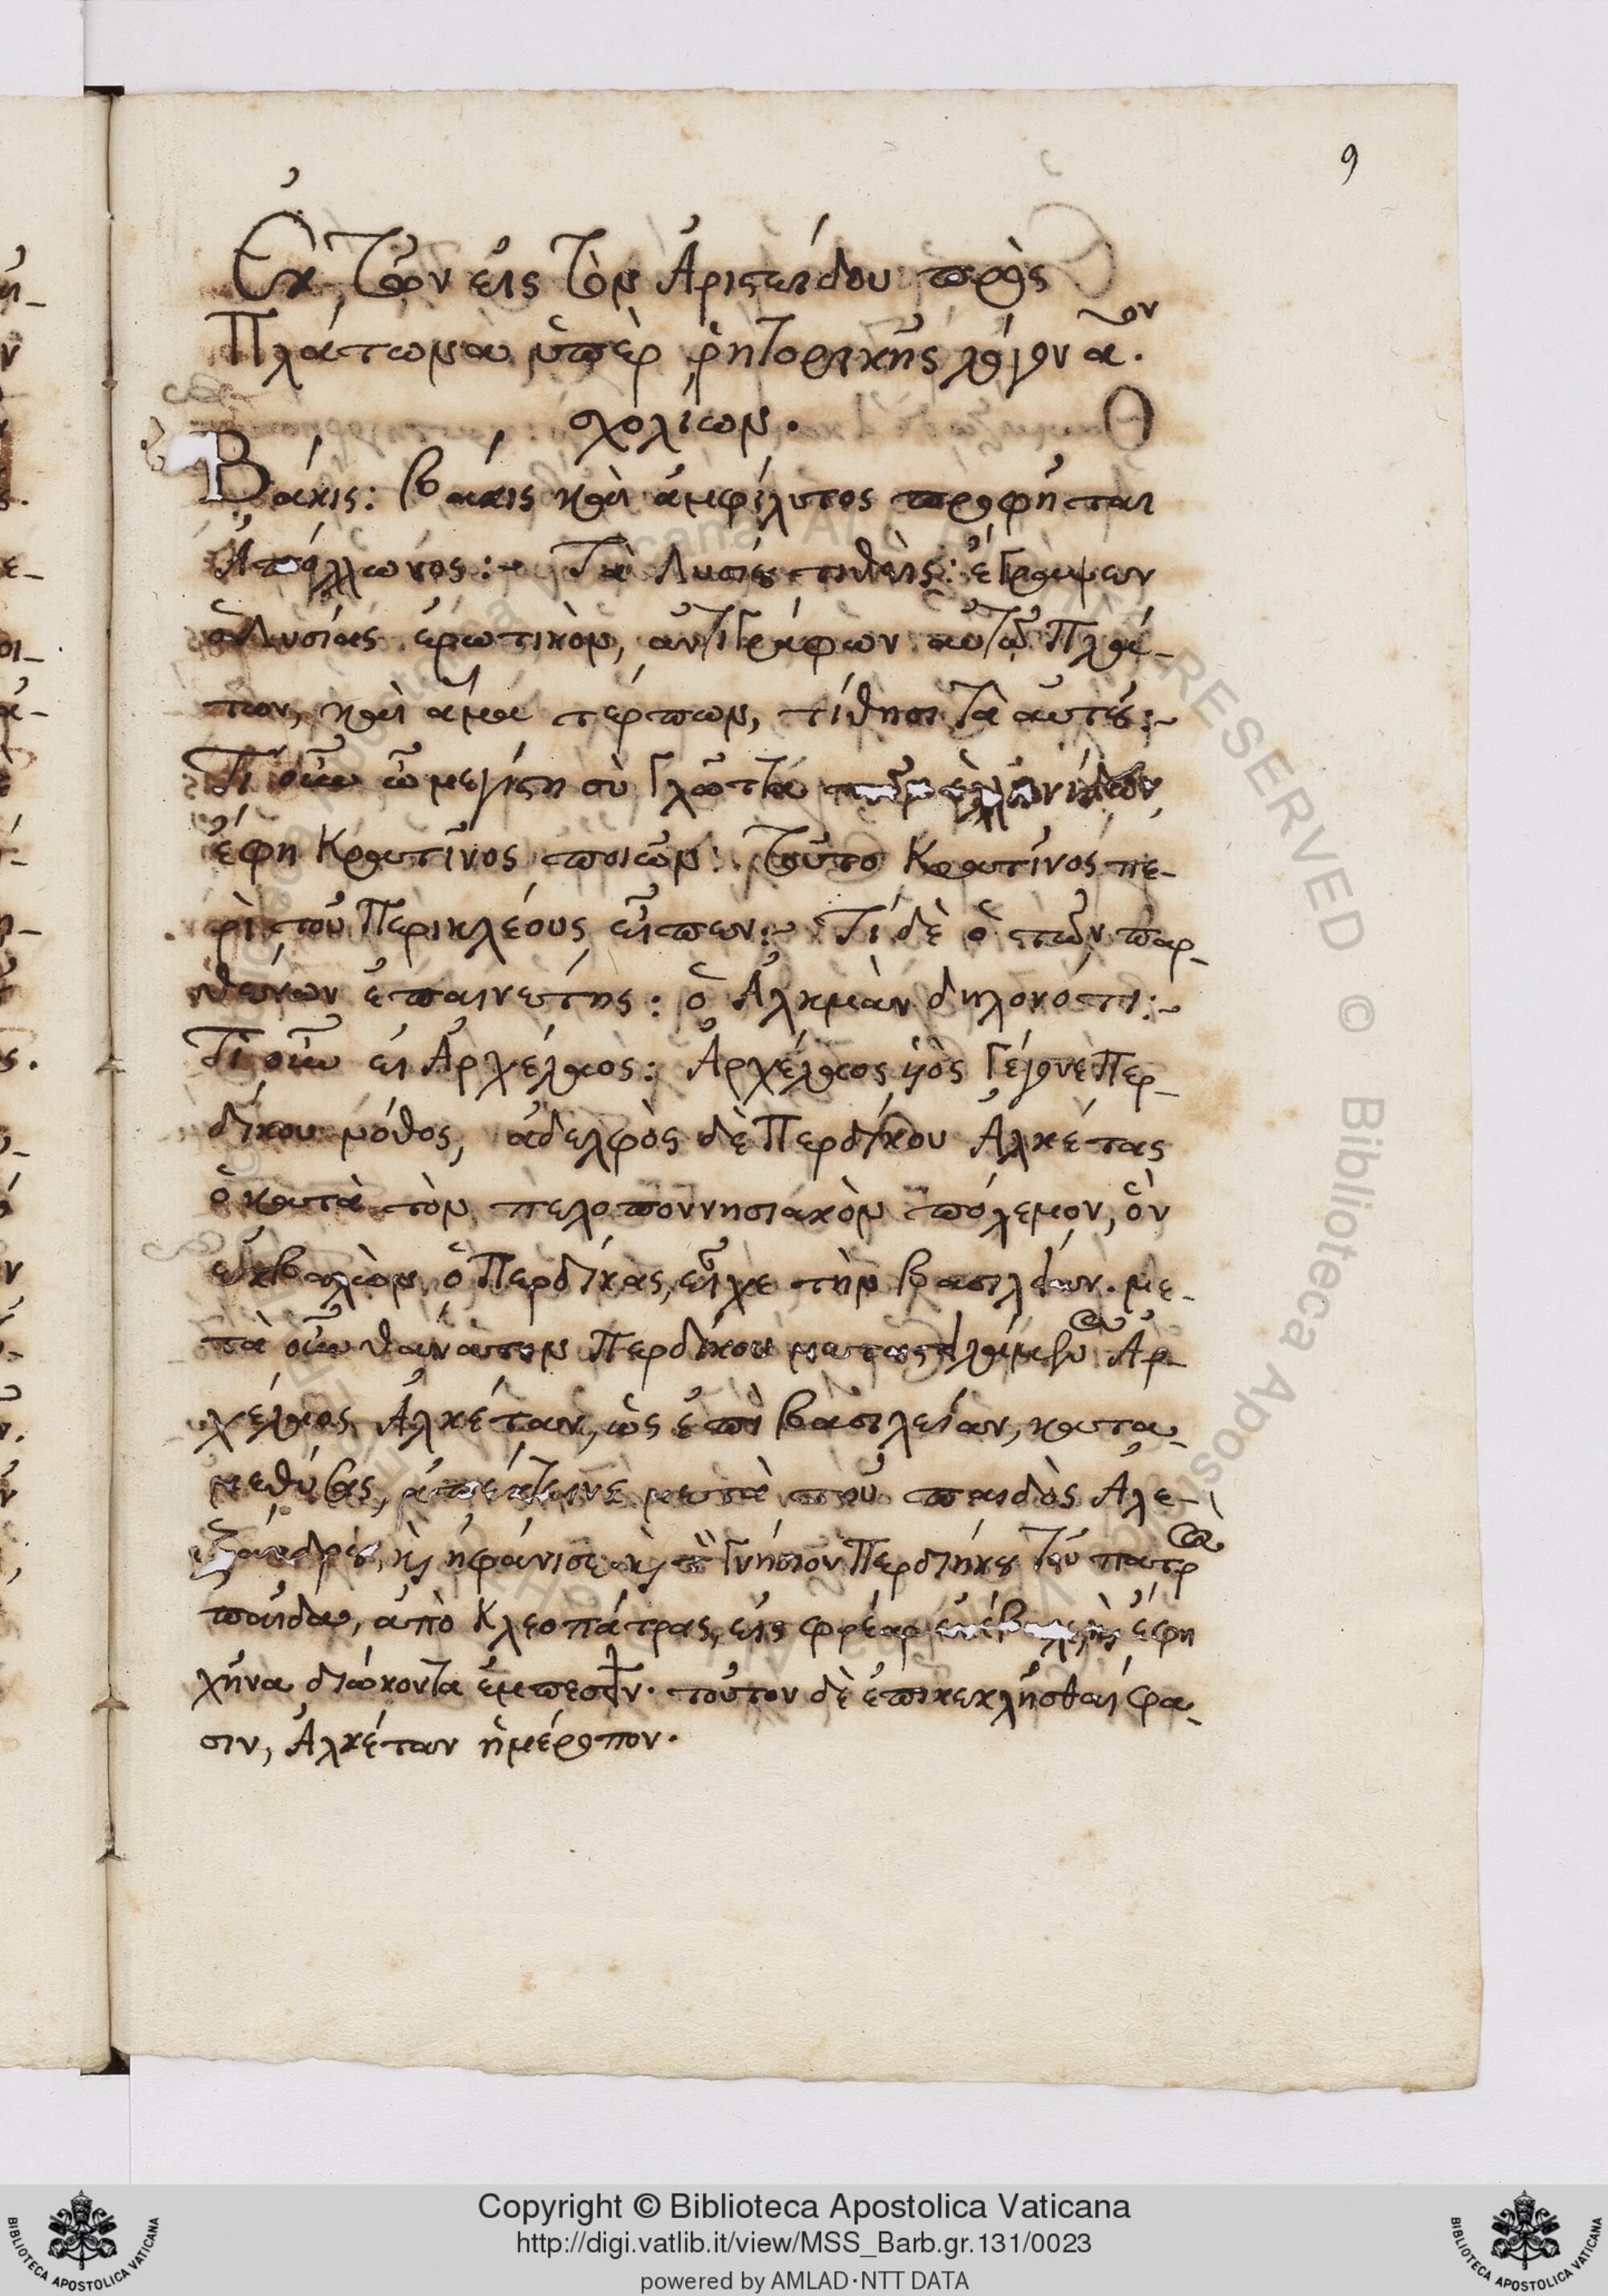 9
Ἐκ τῶν εἰς τὸν Ἀριστείδου πρὸς
Πλάτωνα ὑπὲρ ῥητορικῆς λόγον αον.
σχολίων.
Βάκις: βάκις καὶ ἀμφίλυτος προφῆται
Ἀπόλλωνος:~ Τὰ Λυσίου τιθεὶς: ἔγραψεν
ὁ Λυσίας ἐρωτικὸν, ἀντιγράφων αὐτῷ Πλά-
των, καὶ ἅμα τέρπων, τίθησι τὰ αὐτοῦ:~
Τί οὖν ὦ μεγίστη σὺ γλῶττα τῶν ἑλληνίδων,
ἔφη Κρατῖνος ποιῶν: τοῦτο Κρατῖνος πε-
ρὶ τοῦ Περικλέους εἶπεν:~ Τί δὲ ὁ τῶν παρ-
θένων ἐπαινέτης: ὁ Ἀλκμὰν δηλονότι:~
Τί οὖν εἰ Ἀρχέλαος: Ἀρχέλαος υἱὸς γέγονε Περ-
δίκου νόθος, ἀδελφὸς δὲ Περδίκου Ἀλκέτας
ὁ κατὰ τὸν πελοποννησιακὸν πόλεμον, ὃν
ἐκβαλὼν ὁ Περδίκας, εἶχε τὴν βασιλείαν. με-
τὰ οὖν θάνατον Περδίκου Ἀρ-
χέλαος Ἀλκέταν, ὡς ἐπὶ βασιλείαν, κατα-
μεθύσας, ἀπέκτεινε μετὰ τοῦ παιδὸς Ἀλε-
ξάνδρου, καὶ ἠφάνισε καὶ τὸ γνήσιον Περδίκκου τοῦ πατρὸς
παῖδα, ἀπὸ Κλεοπάτρας, εἰς φρέαρ ἐνέβαλε καὶ ἔφη
χῆνα διώκοντα ἐμπεσεῖν. τοῦτον δὲ ἐπικεκλῆσθαί φα-
σιν, Ἀλκέταν ἡμέροπον.
Copyright © Biblioteca Apostolica Vaticana
http://digi.vatlib.it/view/MSS_Barb.gr.131/0023
powered by AMLAD·NTT DATA